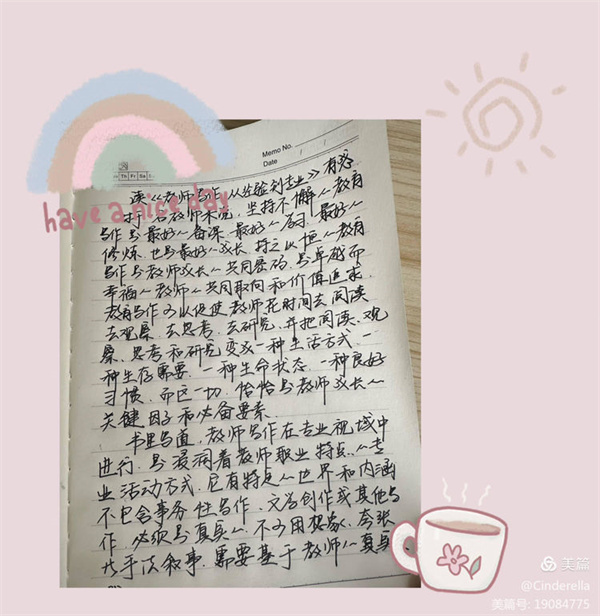 Memo No.
Date
Th Fr Sa
have a nice day
读《教师写作:从经验到专业》有感
对一名教师来说,坚持不懈的教育
写作是最好的备课、最好的研修
修炼,也是最好的成长,持之以恒的教育
写作是教师成长的共同密码,是卓越而
幸福的教师的共同取向和价值追求,
教育写作可以促使教师花时间去阅读
去观察、去思考、去研究,并把阅读、观
察、思考和研究变成一种生活方式,一
种生存需要,一种生命状态,一种良好
习惯,而这一切,恰恰是教师成长的
关键因子和必备要素.
书里写道,教师写作在专业视域中
进行,是浸润着教师职业特点的专
业活动方式,它有特定的世界和内涵
不包含事务性写作、文学创作或其他写
作,必须是真实的,不可用想象、夸张
的手法叙事,需要基于教师的真实
美篇
@Cinderella
美篇号: 19084775